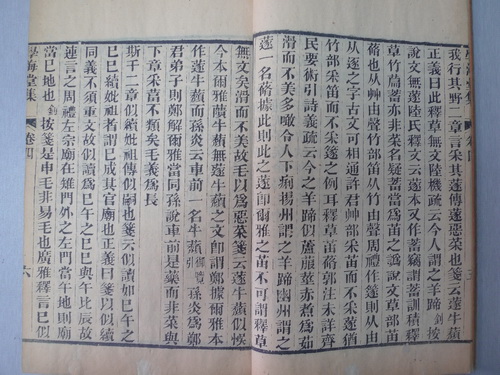 學海堂集
卷四
我行其野二章言采其蓫傳蓫惡菜也箋云蓫牛蘈
正義曰此釋草無文陸機疏云今人謂之羊蹄釗按
說文無蓫陸氏釋文云蓫本又作蓄竊謂蓄訓積釋
草竹萹蓄亦非菜名疑蓄當爲苖之譌說文草部苖
蓨也从艸由聲竹部笛从竹由聲周禮作篴則从由
从逐之字古文可相通許君艸部采苖而不采蓫猶
竹部采笛而不采篴之例耳釋草苖蓨郭注未詳齊
民要術引詩義疏云今之羊蹄似蘆菔莖赤煮爲茹
滑而不美多噉令人下痢揚州謂之羊蹄幽州謂之
蓫一名蓨據此則此之蓫卽爾雅之苖不可謂釋草
無文矣滑而不美故毛以爲惡菜箋云蓫牛蘈似悞
今本爾雅牛蘈無蓫牛蘈之文卽謂鄭據爾雅本
作蓫牛蘈而孫炎云車前一名牛蘈引御覽孫炎爲鄭
君弟子則鄭解爾雅當同孫說車前是藥而非菜與
下章采葍不類矣毛義爲長
斯千二章似續妣祖傳似嗣也箋云似讀如巳午之
巳巳續妣祖者謂已成其宮廟也正義曰箋以似續
同義不須重文故似讀爲巳午之巳巳與午比辰故
連言之周禮左宗廟在雉門外之左門當午地則廟
當巳地也釗按箋是申毛非易毛也廣雅釋言巳似
學海堂集
卷四
六